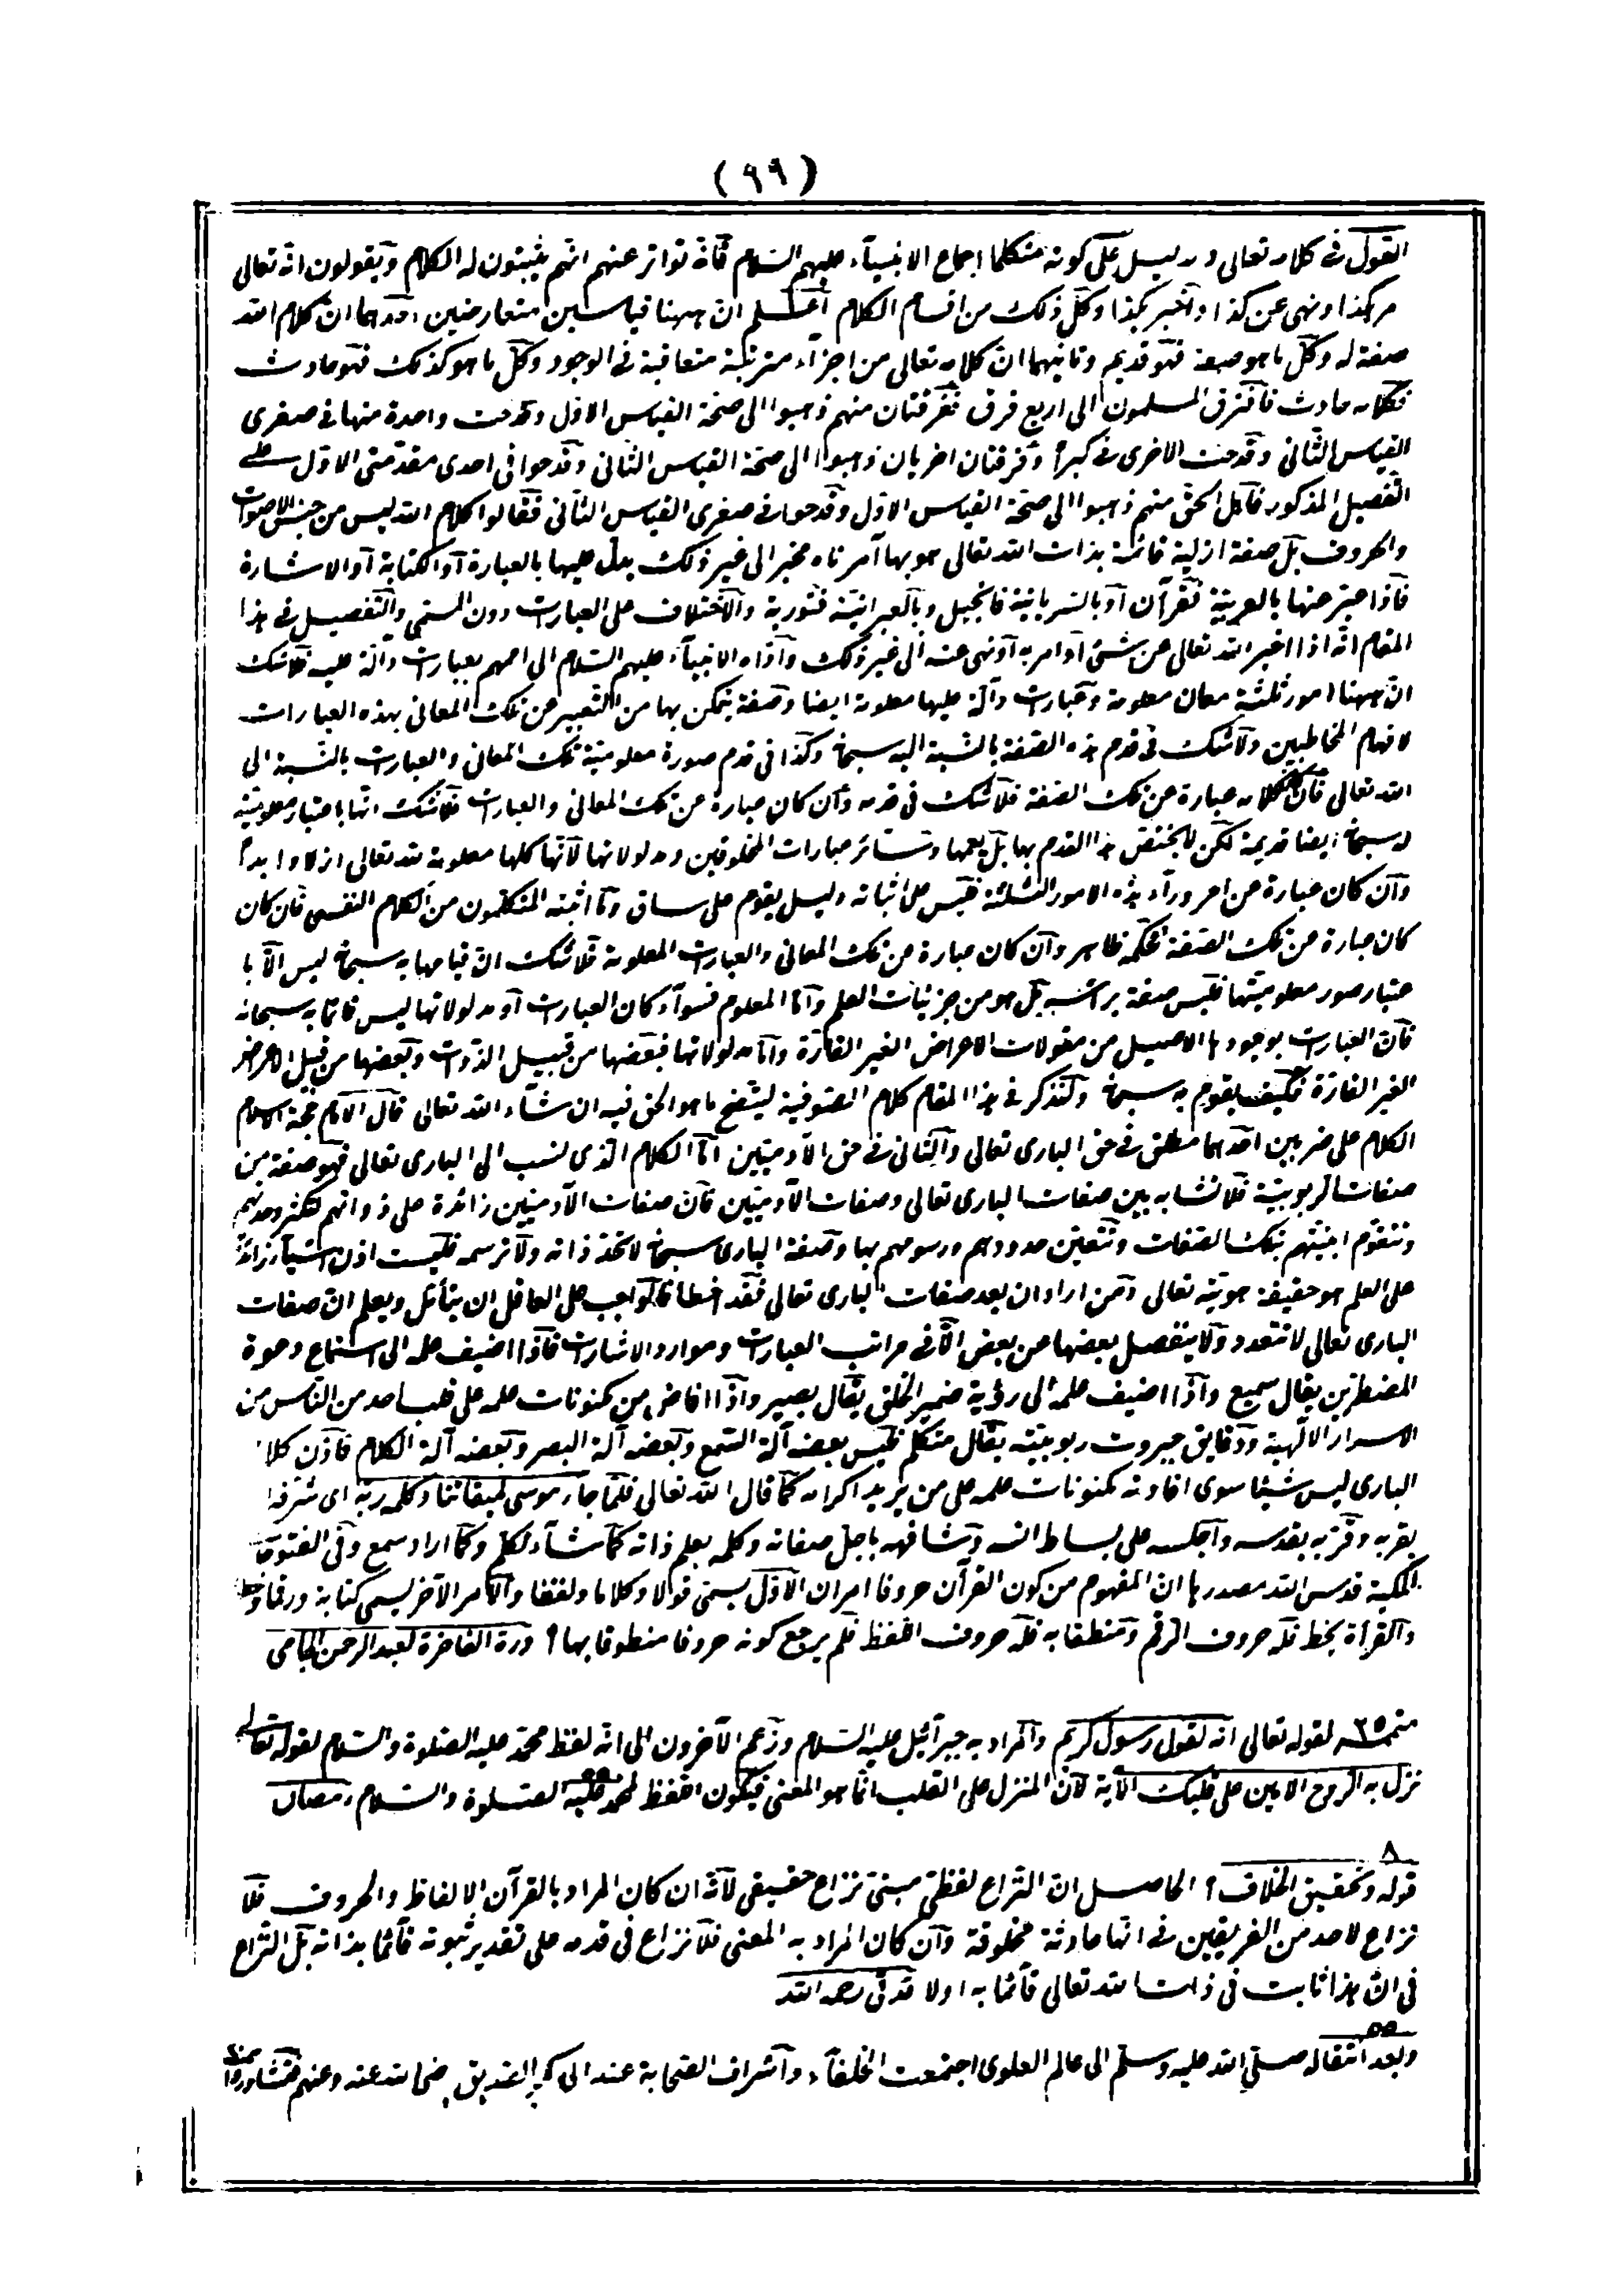 (٩٩)
القول في كلامه تعالى و دليل على كونه متكلما اجماع الانبياء عليهم السلام فانه تواتر عنهم انهم يثبتون له الكلام ويقولون انه تعالى
مر بكذا ونهى عن كذا واخبر بكذا وكل ذلك من اقسام الكلام اعلم ان ههنا قياسين متعارضين احدهما ان كلام الله
صفة له وكل ما هو صفة فهو قديم وثانيهما ان كلامه تعالى من اجزاء مترتبة متعاقبة في الوجود وكل ما هو كذلك فهو حادث
فكلامه حادث فافترق المسلمون الى اربع فرق ففرقتان منهم ذهبوا الى صحة القياس الاول وقدحت واحدة منها في صغرى
القياس الثاني وقدحت الاخرى في كبراه وفرقتان اخريان ذهبوا الى صحة القياس الثاني وقدحوا في احدى مقدمتي الاول على
التفصيل المذكور فاهل الحق منهم ذهبوا الى صحة القياس الاول وقدحوا في صغرى القياس الثاني فقالوا كلام الله ليس من جنس الاصوات
والحروف بل صفة ازلية قائمة بذات الله تعالى هو بها آمر ناه مخبر الى غير ذلك يدل عليها بالعبارة او الكتابة او الاشارة
فاذا عبر عنها بالعربية فقرآن او بالسريانية فانجيل وبالعبرانية فتورية والاختلاف على العبارت دون المسمى والتفصيل في هذا
المقام انه اذا اخبر الله تعالى عن شئ او امر به او نهى عنه الى غير ذلك واداه الانبياء عليهم السلام الى اممهم بعبارت دالة عليه فلا شك
ان ههنا امور ثلثة معان معلومة وعبارت دالة عليها معلومة ايضا وصفة يتمكن بها من التعبير عن تلك المعاني بهذه العبارات
لافهام المخاطبين ولا شك في قدم هذه الصفة بالنسبة اليه سبحانه وكذا في قدم صورة معلومية تلك المعاني والعبارت بالنسبة الى
الله تعالى فان كان كلامه عبارة عن تلك الصفة فلا شك في قدمه وان كان عبارة عن تلك المعاني والعبارت فلا شك انها باعتبار معلوميته
له سبحانه ايضا قديمة لكن لا يختص هذا القدم بها بل يعمها وسائر عبارات المخلوقين ومدلولاتها لانها كلها معلومة لله تعالى ازلا و ابدا
وان كان عبارة عن امر وراء هذه الامور الثلثة فليس على اثباته دليل يقوم على ساق وما اثبته المتكلمون من الكلام النفسي فان كان
كان عبارة عن تلك الصفة فحكمه ظاهر وان كان عبارة عن تلك المعاني والعبارت المعلومة فلا شك ان قيامها به سبحانه ليس الا با
عتبار صور معلوميتها فليس صفة برأسه بل هو من جزئيات العلم واما المعلوم فسواء كان العبارت او مدلولاتها ليس قائما به سبحانه
فان العبارت بوجودها الاصيل من مقولات الاعراض الغير القارة واما مدلولاتها فبعضها من قبيل الذوات وبعضها من قبيل الاعراض
الغير القارة فكيف يقوم به سبحانه ولنذكر في هذا المقام كلام الصوفية ليتضح ما هو الحق فيه ان شاء الله تعالى قال الامام حجة الاسلام
الكلام على ضربين احدهما مطلق في حق الباري تعالى والثاني في حق الآدميين اما الكلام الذي ينسب الى الباري تعالى فهو صفة من
صفات الربوبية فلا تشابه بين صفات الباري تعالى وصفات الآدميين فان صفات الآدميين زائدة على ذواتهم لتكثر وحدتهم
وتتقوم انيتهم بتلك الصفات وتتعين حدودهم ورسومهم بها وصفة الباري سبحانه لا تحد ذاته ولا ترسمه فليست اذن اشياء زائدة
على العلم هو حقيقة هويته تعالى ومن اراد ان يعد صفات الباري تعالى فقد اخطأ فالواجب على العاقل ان يتأمل ويعلم ان صفات
الباري تعالى لا تتعدد ولا ينفصل بعضها عن بعض الا في مراتب العبارت وموارد الاشارت فاذا اضيف علمه الى استماع دعوة
المضطرين يقال سميع واذا اضيف علمه الى رؤية ضمير الخلق يقال بصير واذا افاض من مكنونات علمه على قلب احد من الناس من
الاسرار الالهية ودقايق جبروت ربوبيته يقال متكلم فليس بعضه آلة السمع وبعضه آلة البصر وبعضه آلة الكلام فاذن كلام
الباري ليس شيئا سوى افادته مكنونات علمه على من يريد اكرامه كما قال الله تعالى فلما جاء موسى لميقاتنا وكلمه ربه اى شرفه
بقربه وقربه بقدسه واجلسه على بساط انسه وشافهه باجل صفاته وكلمه بعلم ذاته كما شاء تكلم وكما اراد سمع وفي الفتوحات
المكية قدس الله مصدرها ان المفهوم من كون القرآن حروفا امران الاول يسمى قولا وكلاما ولفظا والامر الآخر يسمى كتابة ورقما وخطا
والقرآن بخط فله حروف الرقم وينطق به فله حروف اللفظ فلم يرجع كونه حروفا منطوقا بها؟ درة الفاخرة لعبد الرحمن الجامي
لقوله تعالى انه لقول رسول كريم والمراد به جبرائيل عليه السلام وزعم الآخرون الى انه لفظ محمد عليه الصلوة والسلام لقوله تعالى
نزل به الروح الامين على قلبك الآية لان المنزل على القلب انما هو المعنى فيكون اللفظ لمحمد عليه الصلوة والسلام،
٨
قوله وتحقيق الخلاف؟ الحاصل ان النزاع لفظي مبنى نزاع حقيقي لانه ان كان المراد بالقرآن الالفاظ والحروف فلا
نزاع لاحد من الفريقين في انها حادثة مخلوقة وان كان المراد به المعنى فلا نزاع في قدمه على تقدير ثبوته قائما بذاته بل النزاع
في ان هذا ثابت في ذات الله تعالى قائما به اولا رحمه الله
وبعد انتقاله صلى الله عليه وسلم الى عالم العلوى اجتمعت الخلفاء واشراف الصحابة عند ابى بكر الصديق رضى الله عنه وعنهم فتشاوروا